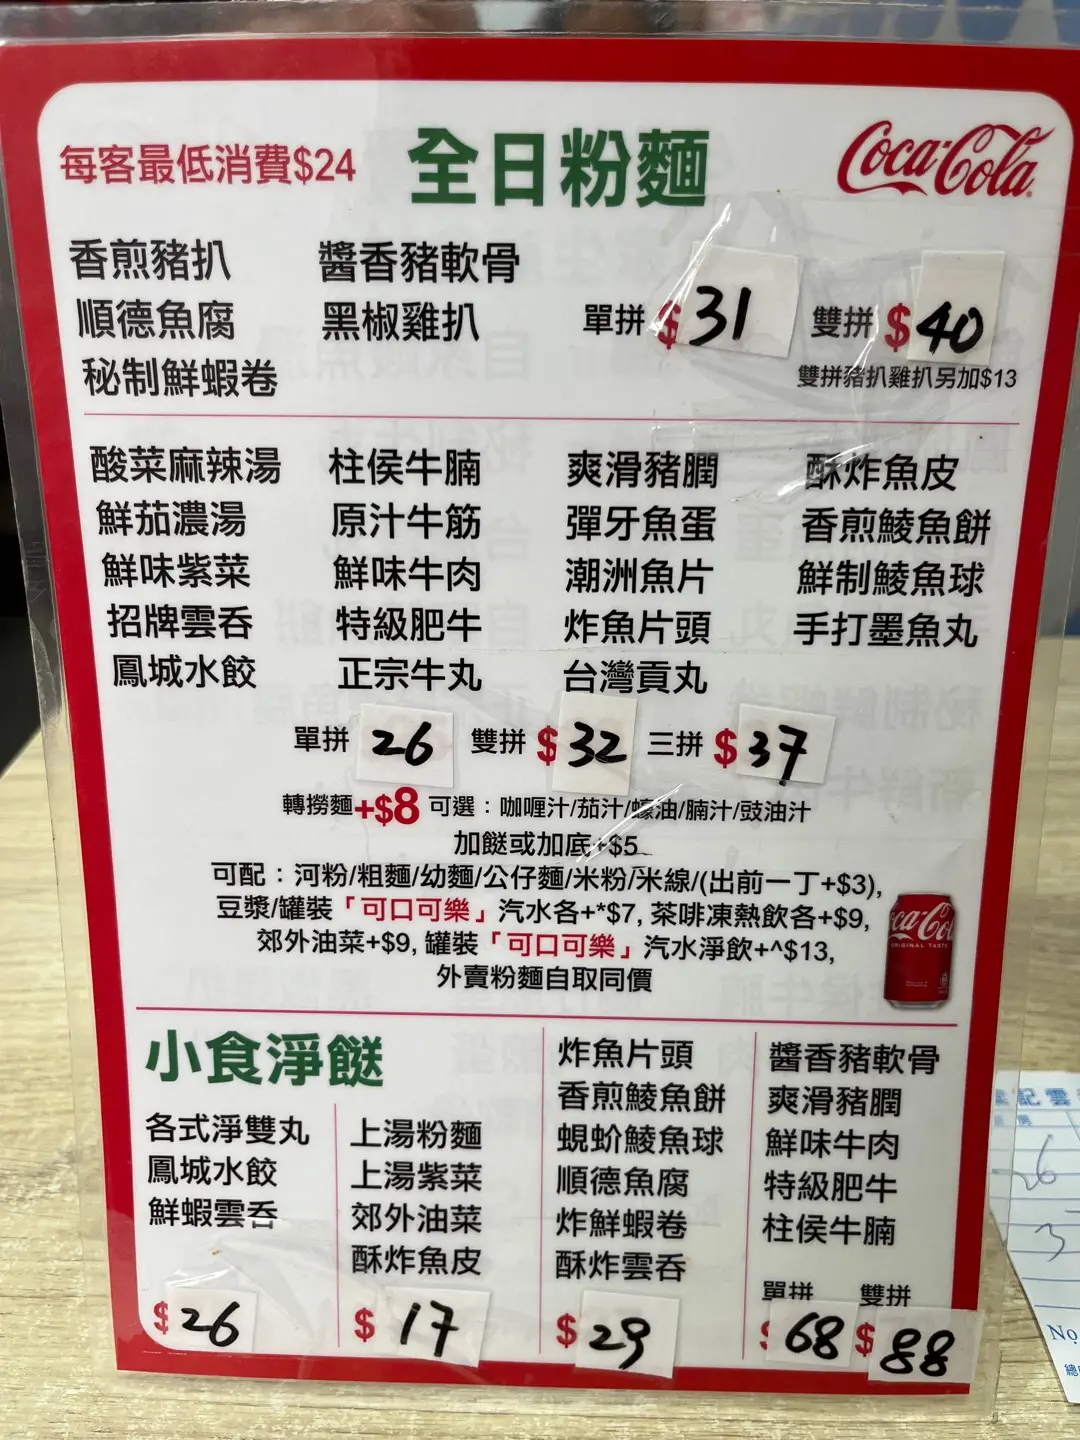 每客最低消費$24
全日粉麵
Coca-Cola
香煎豬扒 醬香豬軟骨
順德魚腐 黑椒雞扒 單拼 $31 雙拼 $40
秘制鮮蝦卷 雙拼豬扒雞扒另加$13
酸菜麻辣湯 柱侯牛腩 爽滑豬膶 酥炸魚皮
鮮茄濃湯 原汁牛筋 彈牙魚蛋 香煎鯪魚餅
鮮味紫菜 鮮味牛肉 潮洲魚片 鮮制鯪魚球
招牌雲吞 特級肥牛 炸魚片頭 手打墨魚丸
鳳城水餃 正宗牛丸 台灣貢丸
單拼 26 雙拼 $32 三拼 $37
轉撈麵+$8 可選：咖喱汁/茄汁/蠔油/腩汁/豉油汁
加餸或加底+$5
可配：河粉/粗麵/幼麵/公仔麵/米粉/米線/(出前一丁+$3),
豆漿/罐裝「可口可樂」汽水各+*$7, 茶啡凍熱飲各+$9,
郊外油菜+$9, 罐裝「可口可樂」汽水淨飲+^$13,
外賣粉麵自取同價
Coca-Cola
ORIGINAL TASTE
小食淨餸
各式淨雙丸
鳳城水餃
鮮蝦雲吞
$26
上湯粉麵
上湯紫菜
郊外油菜
酥炸魚皮
$17
炸魚片頭
香煎鯪魚餅
蜆蚧鯪魚球
順德魚腐
炸鮮蝦卷
酥炸雲吞
$29
醬香豬軟骨
爽滑豬膶
鮮味牛肉
特級肥牛
柱侯牛腩
單拼 雙拼
$68 $88
記雲
26
3
No
總